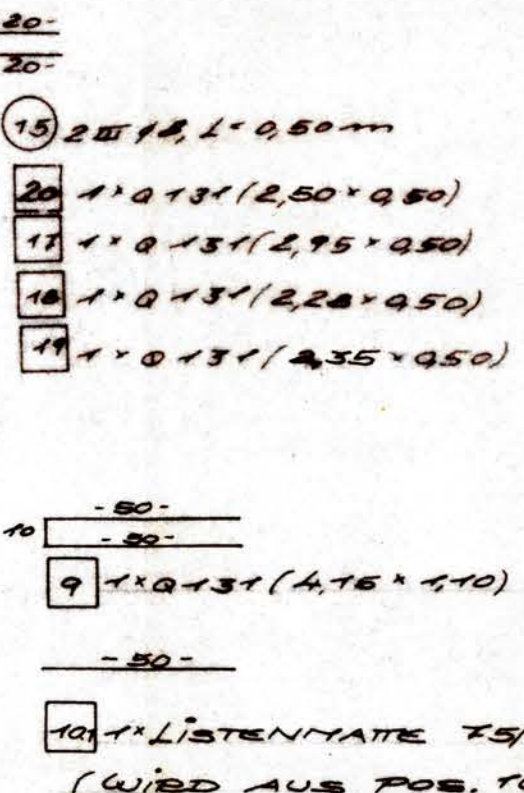 20-
20-
15 2 III ø8, L= 0,50 m
20 1 × Q 131 (2,50 × 0,50)
17 1 × Q 131 (2,95 × 0,50)
18 1 × Q 131 (2,28 × 0,50)
19 1 × Q 131 (2,35 × 0,50)
- 50 -
10
- 50 -
9 1 × Q 131 (4,16 × 1,10)
- 50 -
10.1 1 × LISTENMATTE 75/
(WIRD AUS POS. 1